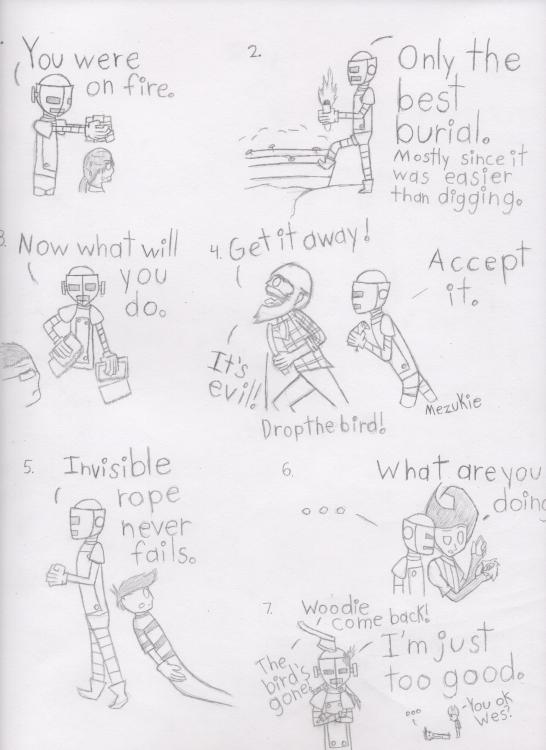 You were
on fire.
2.
Only the
best
burial.
Mostly since it
was easier
than digging.
3.
Now what will
you
do.
4.
Get it away!
It's
evil!
Accept
it.
Drop the bird!
Mezukie
5.
Invisible
rope
never
fails.
6.
What are you
doing
...
7.
Woodie
come back!
The
bird's
gone.
I'm just
too good.
...
You ok
Wes?